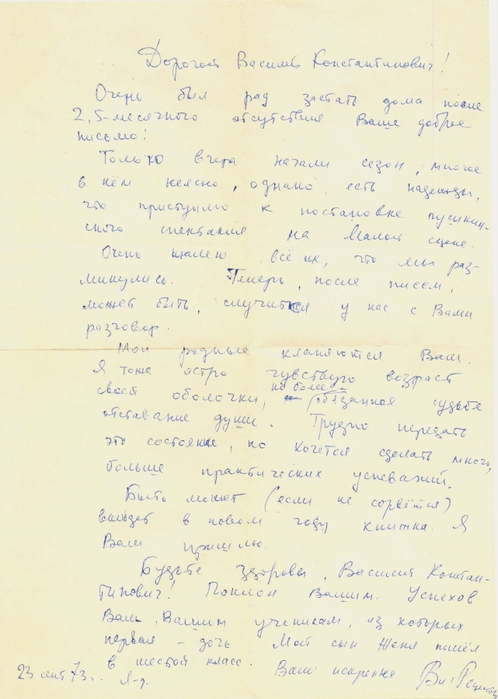 Дорогой Василий Константинович!
Очень был рад застать дома после
2,5-месячного отсутствия Ваше доброе
письмо!
Только вчера начали сезон, многое
в нём неясно, однако, есть надежды,
что приступлю к постановке пушкин-
ского спектакля на Малой сцене.
Очень жалею всё же, что мы раз-
минулись. Теперь, после писем,
может быть, случится у нас с Вами
разговор.
Мои родные кланяются Вам.
Я тоже остро чувствую возраст
своей оболочки, но более
обязанная судьбе
отставание души. Трудно передать
это состояние, но хочется сделать много,
больше практических
Быть может (если не сорвётся)
выйдет в новом году книжка. Я
Вам пришлю.
Будьте здоровы, Василий Констан-
тинович! Поклон Вашим. Успехов
Вам, Вашим ученикам, из которых
первая – дочь. Мой сын Женя пошёл
в шестой класс. Ваш искренне
23 сент 73. Л-д.